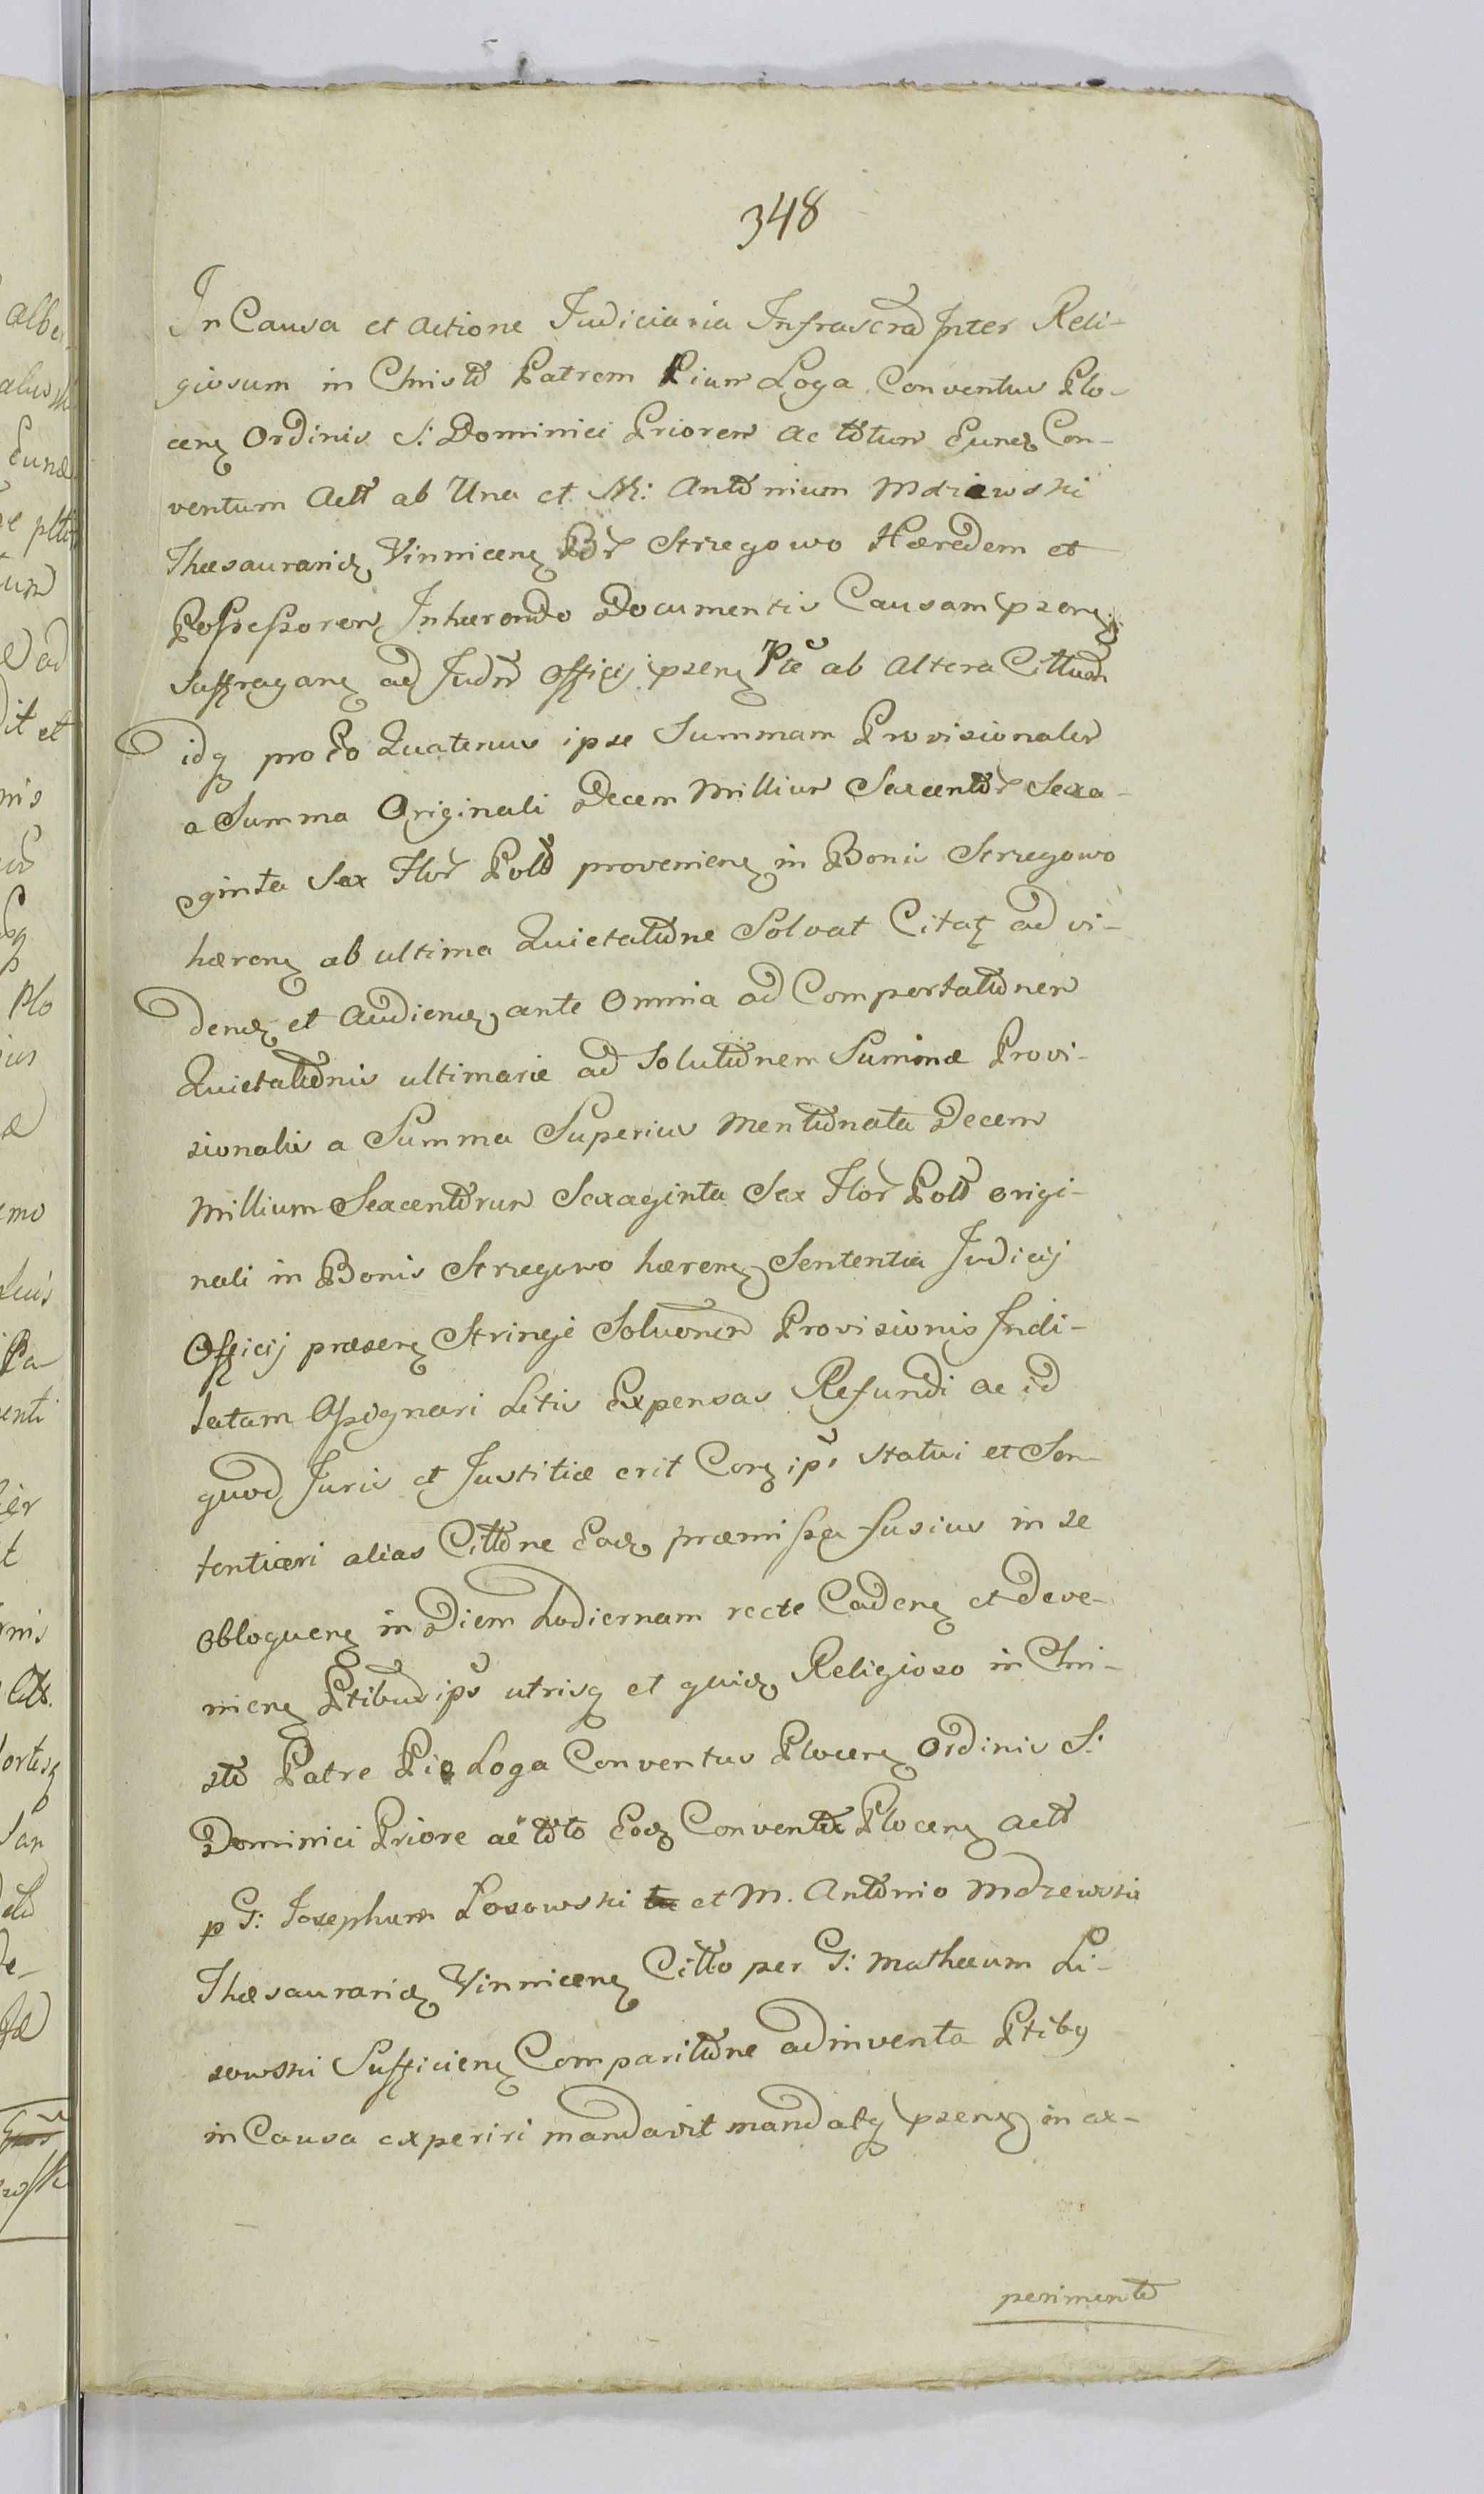 348
In Causa et Actione Judiciaria Infrascrā Inter Reli-
giosum in Christō Patrem Pium Loga Conventus Plo-
cenꝫ Ordinis S: Dominici Priorem ac tōtum Eundꝫ Con-
ventum Actē ab Una et M: Antōnium Mdziewski
Thesaurariꝫ Vinnicenꝫ Bōr Strzegowo Hæredem et
Possessorem Inhærendo Documentis Causam pꝛsenꝫ
Suffraganꝫ ad Judm̄ Officij pꝛsenꝫ Pte ab Altera Cittum
idq pro Eo Quatenus ipse Summam Provisionalem
a Summa Originali Decem Millium Sexcentōr Sexa-
ginta Sex Flor Polō provenienꝫ in Bonis Strzegowo
hærenꝫ ab ultima Quietatōne Solvat Citatꝫ ad vi-
dendꝫ et Audiendꝫ ante Omnia ad Comportatōnem
Quietatōnis ultimarie ad Solutōnem Summæ Provi-
sionalis a Summa Superius Mentōnata Decem
Millium Sexcentōrum Sexaginta Sex Flor Polō origi-
nali in Bonis Strzegowo hærenꝫ Sententia Judicij
Officij præsenꝫ Stringi Soluōnem Provisionis Indi-
latam Assignari Litis Expensas Refundi ac id
quod Juris et Justitiæ erit Corꝫ ips̄ Statui et Sen-
tentiari alias Cittōne Eadꝫ præmissa fusius in se
obloquenꝫ in Diem hodiernam recte Cadenꝫ et Deve-
nienꝫ Ptibus ips̄ utrisq et quidꝫ Religioso in Chri-
stō Patre Pio Loga Conventus Plocenꝫ Ordinis S:
Dominici Priore ac tōto Eodꝫ Conventu Plocenꝫ Actē
p G: Josephum Losowski et M. Antōnio Mdzewski
Thesaurariꝫ Vinnicenꝫ Cittō per G: Mathæum Li-
sowski Sufficienꝫ Comparitōne adinventa Ptibq
in Causa experiri mandavit mandatq pꝛsenꝫ in ex-
perimentō